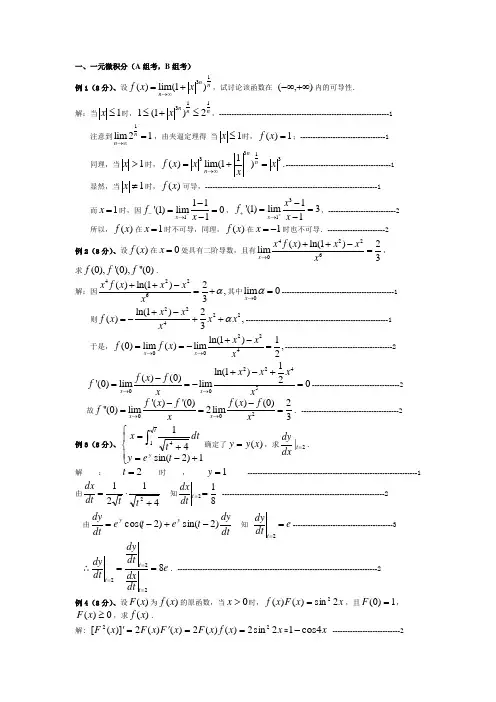 一、一元微积分（A组考，B组考）
例1（8分）、设 $f(x)=\lim\limits_{n\to\infty}(1+|x|^{3n})^{\frac{1}{n}}$，试讨论该函数在 $(-\infty,+\infty)$ 内的可导性.
解：当 $|x|\le 1$ 时，$1\le(1+|x|^{3n})^{\frac{1}{n}}\le 2^{\frac{1}{n}}$，----------1
注意到 $\lim\limits_{n\to\infty}2^{\frac{1}{n}}=1$，由夹逼定理得 当 $|x|\le 1$ 时，$f(x)=1$；----------1
同理，当 $|x|>1$ 时，$f(x)=|x|^3\lim\limits_{n\to\infty}(1+|\frac{1}{x}|^{3n})^{\frac{1}{n}}=|x|^3$.----------1
显然，当 $|x|\ne 1$ 时，$f(x)$ 可导，----------1
而 $x=1$ 时，因 $f_-'(1)=\lim\limits_{x\to 1^-}\frac{1-1}{x-1}=0$，$f_+'(1)=\lim\limits_{x\to 1^+}\frac{x^3-1}{x-1}=3$，----------2
所以，$f(x)$ 在 $x=1$ 时不可导，同理，$f(x)$ 在 $x=-1$ 时也不可导.----------2
例2（8分）、设 $f(x)$ 在 $x=0$ 处具有二阶导数，且有 $\lim\limits_{x\to 0}\frac{x^4f(x)+\ln(1+x^2)-x^2}{x^6}=\frac{2}{3}$，
求 $f(0),f'(0),f''(0)$.
解：因 $\frac{x^4f(x)+\ln(1+x^2)-x^2}{x^6}=\frac{2}{3}+\alpha$，其中 $\lim\limits_{x\to 0}\alpha=0$ ----------1
则 $f(x)=-\frac{\ln(1+x^2)-x^2}{x^4}+\frac{2}{3}x^2+\alpha x^2$，----------1
于是，$f(0)=\lim\limits_{x\to 0}f(x)=-\lim\limits_{x\to 0}\frac{\ln(1+x^2)-x^2}{x^4}=\frac{1}{2}$，----------2
$f'(0)=\lim\limits_{x\to 0}\frac{f(x)-f(0)}{x}=-\lim\limits_{x\to 0}\frac{\ln(1+x^2)-x^2+\frac{1}{2}x^4}{x^5}=0$ ----------2
故 $f''(0)=\lim\limits_{x\to 0}\frac{f'(x)-f'(0)}{x}=2\lim\limits_{x\to 0}\frac{f(x)-f(0)}{x^2}=\frac{2}{3}$. ----------2
例3（8分）、$\begin{cases}x=\int_1^{\sqrt{t}}\frac{1}{\sqrt{t^4+4}}dt\\y=e^y\sin(t-2)+1\end{cases}$ 确定了 $y=y(x)$，求 $\frac{dy}{dx}|_{t=2}$.
解：$t=2$ 时，$y=1$ ----------1
由 $\frac{dx}{dt}=\frac{1}{2\sqrt{t}}\cdot\frac{1}{\sqrt{t^2+4}}$ 知 $\frac{dx}{dt}|_{t=2}=\frac{1}{8}$ ----------2
由 $\frac{dy}{dt}=e^y\cos(t-2)+e^y\sin(t-2)\frac{dy}{dt}$ 知 $\frac{dy}{dt}|_{t=2}=e$ ----------3
∴ $\frac{dy}{dt}|_{t=2}=\frac{\frac{dy}{dt}|_{t=2}}{\frac{dx}{dt}|_{t=2}}=8e$. ----------2
例4（8分）、设 $F(x)$ 为 $f(x)$ 的原函数，当 $x>0$ 时，$f(x)F(x)=\sin^2 2x$，且 $F(0)=1$，
$F(x)\ge 0$，求 $f(x)$.
解：$[F^2(x)]'=2F(x)F'(x)=2F(x)f(x)=2\sin^2 2x=1-\cos 4x$ ----------2